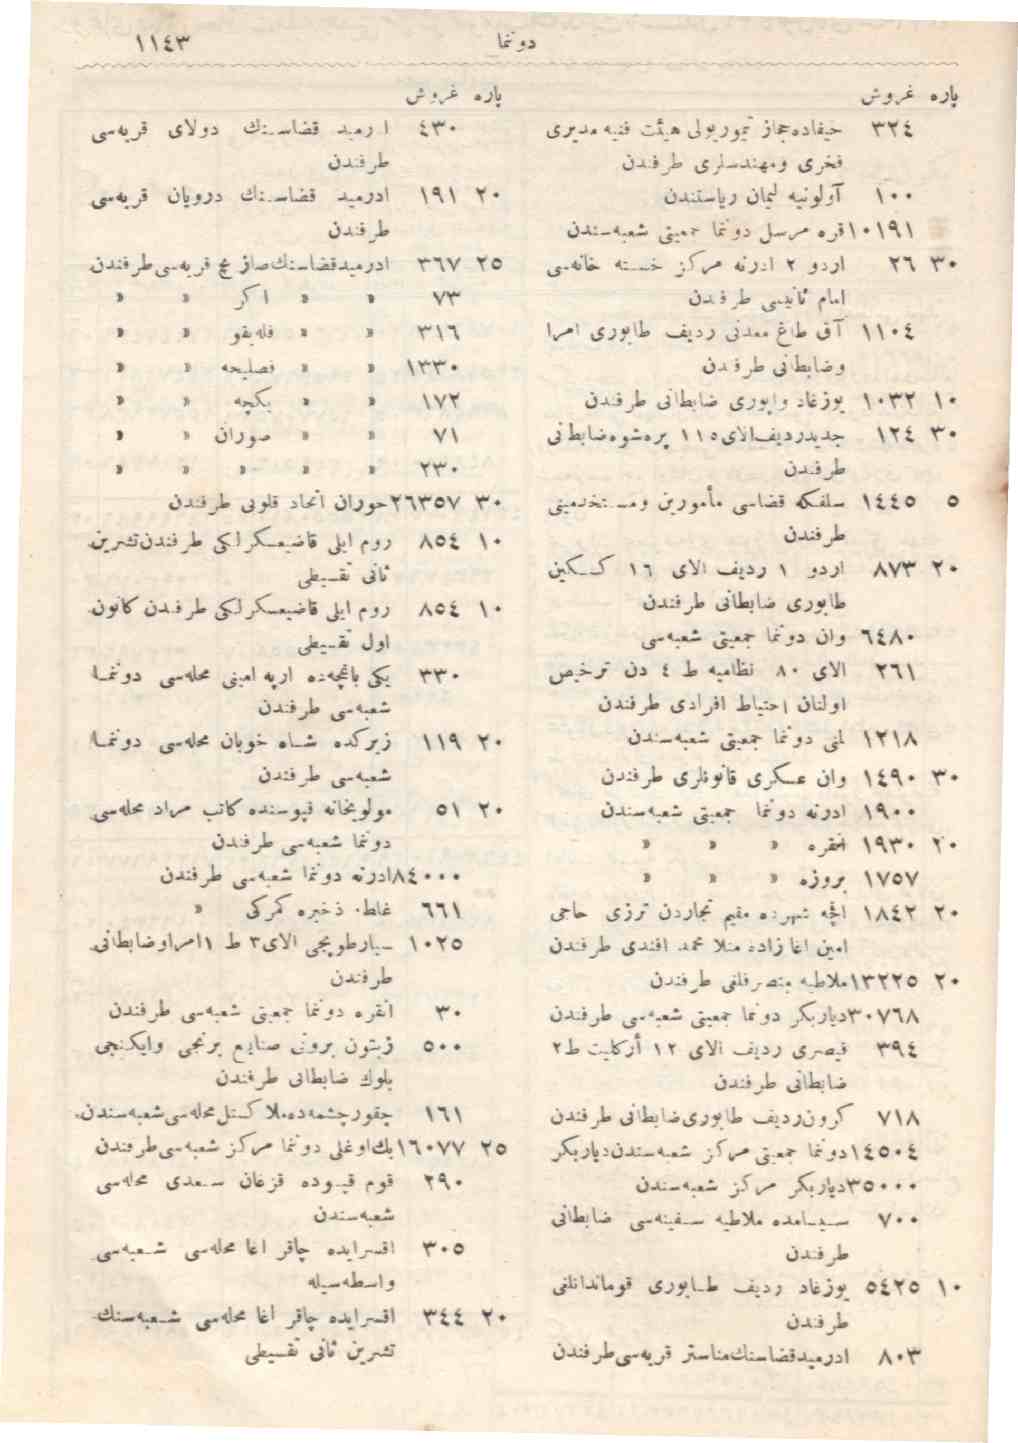 ١١٤٣
دوننما
پاره غروش
٣٢٤ حیفاده حجاز تیموریولی هیئت فنیه مدیری
فخری ومهندسلری طرفندن
١٠٠ آولونیه لیمان ریاستندن
١٠١٩١ قره مرسل دوننما جمعیتی شعبه‌سندن
٣٠ ٢٦ اردو ٢ ادرنه مرکز خسته خانه‌سی
امام ثانیسی طرفندن
١١٠٤ آق طاغ معدنی ردیف طابوری امرا
وضابطانی طرفندن
١٠ ١٠٣٢ یوزغاد واپوری ضابطانی طرفندن
٣٠ ١٢٤ جدید ردیف الای ١١٥ پره‌شوه ضابطانی
طرفندن
٥ ١٤٤٥ سلفکه قضاسی مأمورین ومستخدمینی
طرفندن
٢٠ ٨٧٣ اردو ١ ردیف الای ١٦ کسکین
طابوری ضابطانی طرفندن
٦٤٨٠ وان دوننما جمعیتی شعبه‌سی
٢٦١ الای ٨٠ نظامیه ط ٤ دن ترخیص
اولنان احتیاط افرادی طرفندن
١٢١٨ لمنی دوننما جمعیتی شعبه‌سندن
٣٠ ١٤٩٠ وان عسکری قانونلری طرفندن
١٩٠٠ ادرنه دوننما جمعیتی شعبه‌سندن
٢٠ ١٩٣٠ انقره » » »
١٧٥٧ بروزه » » »
٢٠ ١٨٤٢ انجه شهرده مقیم تجاردن ترزی حاجی
امین اغا زاده منلا محمد افندی طرفندن
٢٠ ١٣٢٢٥ ملاطیه متصرفلغی طرفندن
٣٠٧٦٨ دیاربکر دوننما جمعیتی شعبه‌سی طرفندن
٣٩٤ قیصری ردیف الای ١٢ أرکلیت ط ٢
ضابطانی طرفندن
٧١٨ کرون ردیف طابوری ضابطانی طرفندن
١٤٥٠٤ دوننما جمعیتی مرکز شعبه‌سندن دیاربکر
٣٥٠٠٠ دیاربکر مرکز شعبه‌سندن
٧٠٠ سیسامده ملاطیه سفینه‌سی ضابطانی
طرفندن
١٠ ٥٤٢٥ یوزغاد ردیف طابوری قوماندانلغی
طرفندن
٨٠٣ ادرمید قضاسنك مناستر قریه‌سی طرفندن
پاره غروش
٤٣٠ ادرمید قضاسنك دولای قریه‌سی
طرفندن
٢٠ ١٩١ ادرمید قضاسنك درویان قریه‌سی
طرفندن
٢٥ ٣٦٧ ادرمید قضاسنك قریه‌سی طرفندن
٧٣ » » اکر » »
٣١٦ » » قله‌بقو » »
١٣٣٠ » » فصلیحه » »
١٧٢ » » بکچه » »
٧١ » » صوران » »
٢٣٠ » » » » »
٣٠ ٢٦٣٥٧ حوران اتحاد قلوبی طرفندن
١٠ ٨٥٤ روم ایلی قاضیعسکرلکی طرفندن تشرین
ثانی تقسیطی
١٠ ٨٥٤ روم ایلی قاضیعسکرلکی طرفندن کانون
اول تقسیطی
٣٣٠ یکی باغچه‌ده ارپه امینی محله‌سی دوننما
شعبه‌سی طرفندن
٢٠ ١١٩ زیرکده شاه خوبان محله‌سی دوننما
شعبه‌سی طرفندن
٢٠ ٥١ مولویخانه قپوسنده کاتب مراد محله‌سی
دوننما شعبه‌سی طرفندن
٨٤٠٠٠ ادرنه دوننما شعبه‌سی طرفندن
٦٦١ غلطه ذخیره کمرکی »
١٠٢٥ سیار طوپجی الای ٣ ط ١ امرا وضابطانی
طرفندن
٣٠ انقره دوننما جمعیتی شعبه‌سی طرفندن
٥٠٠ زیتون برونی صنایع برنجی وایکنجی
بلوك ضابطانی طرفندن
١٦١ چقور چشمه‌ده محله‌سی شعبه‌سندن
٢٥ ١٦٠٧٧ بك اوغلی دوننما مرکز شعبه‌سی طرفندن
٢٩٠ قوم قپوده قزغان سعدی محله‌سی
شعبه‌سندن
٣٠٥ اقسرایده چاقر اغا محله‌سی شعبه‌سی
واسطه‌سیله
٢٠ ٣٤٤ اقسرایده چاقر اغا محله‌سی شعبه‌سنك
تشرین ثانی تقسیطی